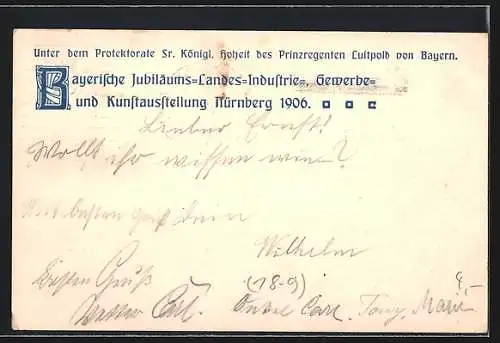 Unter dem Protektorate Sr. Königl. Hoheit des Prinzregenten Luitpold von Bayern.
Bayerische Jubiläums=Landes=Industrie=, Gewerbe=
und Kunstausstellung Nürnberg 1906.
Lieber Ernst!
Wollt ihr wissen wie?
Mit besten Gruß Dein
Wilhelm
(18-9)
Besten Gruß
Vetter Carl. Onkel Carl, Tony, Marie